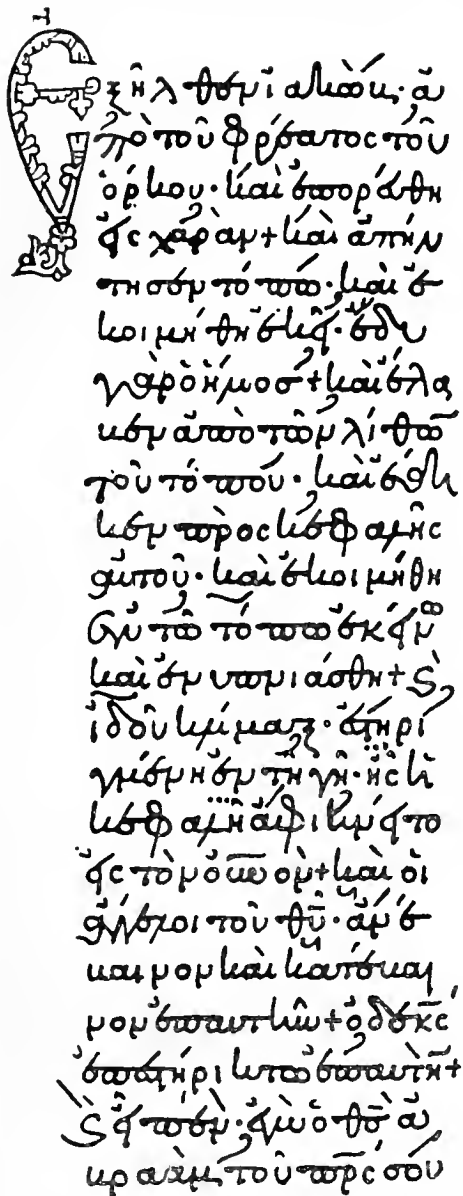 Ἐξῆλθεν ἰακὼβ· ἀ
πὸ τοῦ φρέατος τοῦ
ὅρκου· καὶ ἐπορεύθη
εἰς χαρὰν + καὶ ἀπήν
τησεν τόπω· καὶ ἐ
κοιμήθη ἐκεῖ· ἔδυ
γὰρ ὁ ἥλιος + καὶ ἔλα
βεν ἀπὸ τῶν λίθων
τοῦ τόπου· καὶ ἔθη
κεν πρὸς κεφαλῆς
αὐτοῦ· καὶ ἐκοιμήθη
ἐν τῶ τόπω ἐκείνω
καὶ ἐνυπνιάσθη + καὶ
ἰδοῦ κλίμαξ· ἐστηρι
γμένη ἐν τῆ γῆ· ἧς ἡ
κεφαλὴ ἀφικνεῖτο
εἰς τὸν οὐνον + καὶ οἱ
ἄγγελοι τοῦ θῦ· ἀνέ
βαινον καὶ κατέβαι
νον ἐπ' αὐτὴν + ὁ δὲ κς
ἐπεστήρικτο ἐπ' αὐτὴν +
καὶ εἶπεν· ἐγὼ ὁ θς ἀ
βραὰμ τοῦ πρς σου